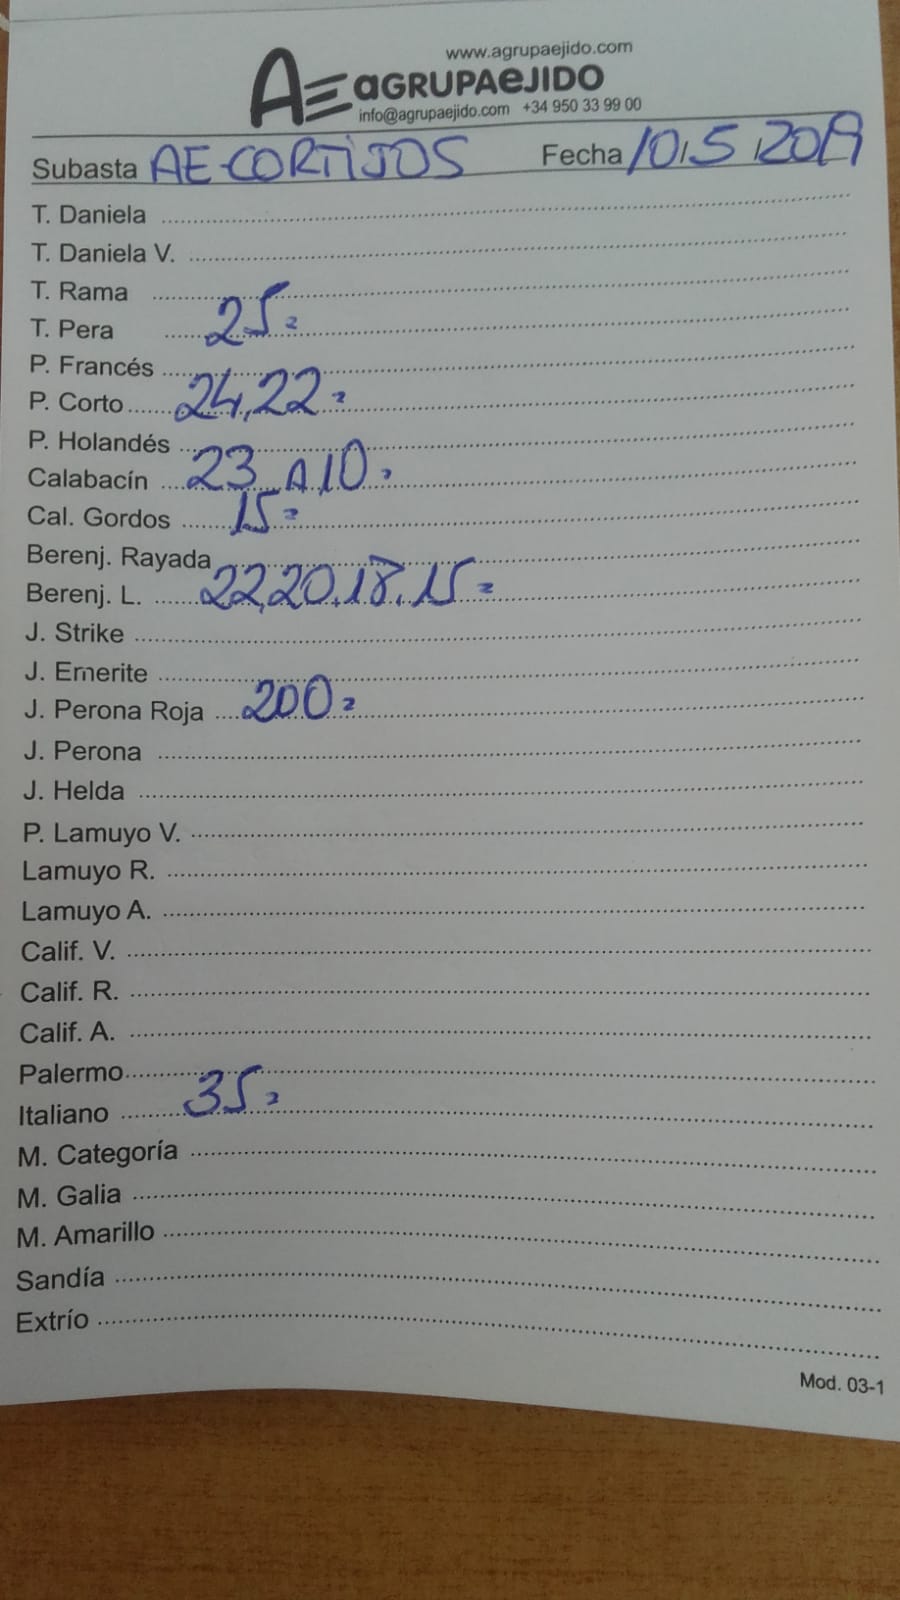 www.agrupaejido.com
AE aGRUPAeJIDO
info@agrupaejido.com +34 950 33 99 00
Subasta AE CORTIJOS Fecha 10,5,2019
T. Daniela
T. Daniela V.
T. Rama
T. Pera 25
P. Francés
P. Corto 24,22
P. Holandés
Calabacín 23 A 10
Cal. Gordos 15
Berenj. Rayada
Berenj. L. 22,20.18.15
J. Strike
J. Emerite
J. Perona Roja 200
J. Perona
J. Helda
P. Lamuyo V.
Lamuyo R.
Lamuyo A.
Calif. V.
Calif. R.
Calif. A.
Palermo
Italiano 35
M. Categoría
M. Galia
M. Amarillo
Sandía
Extrío
Mod. 03-1